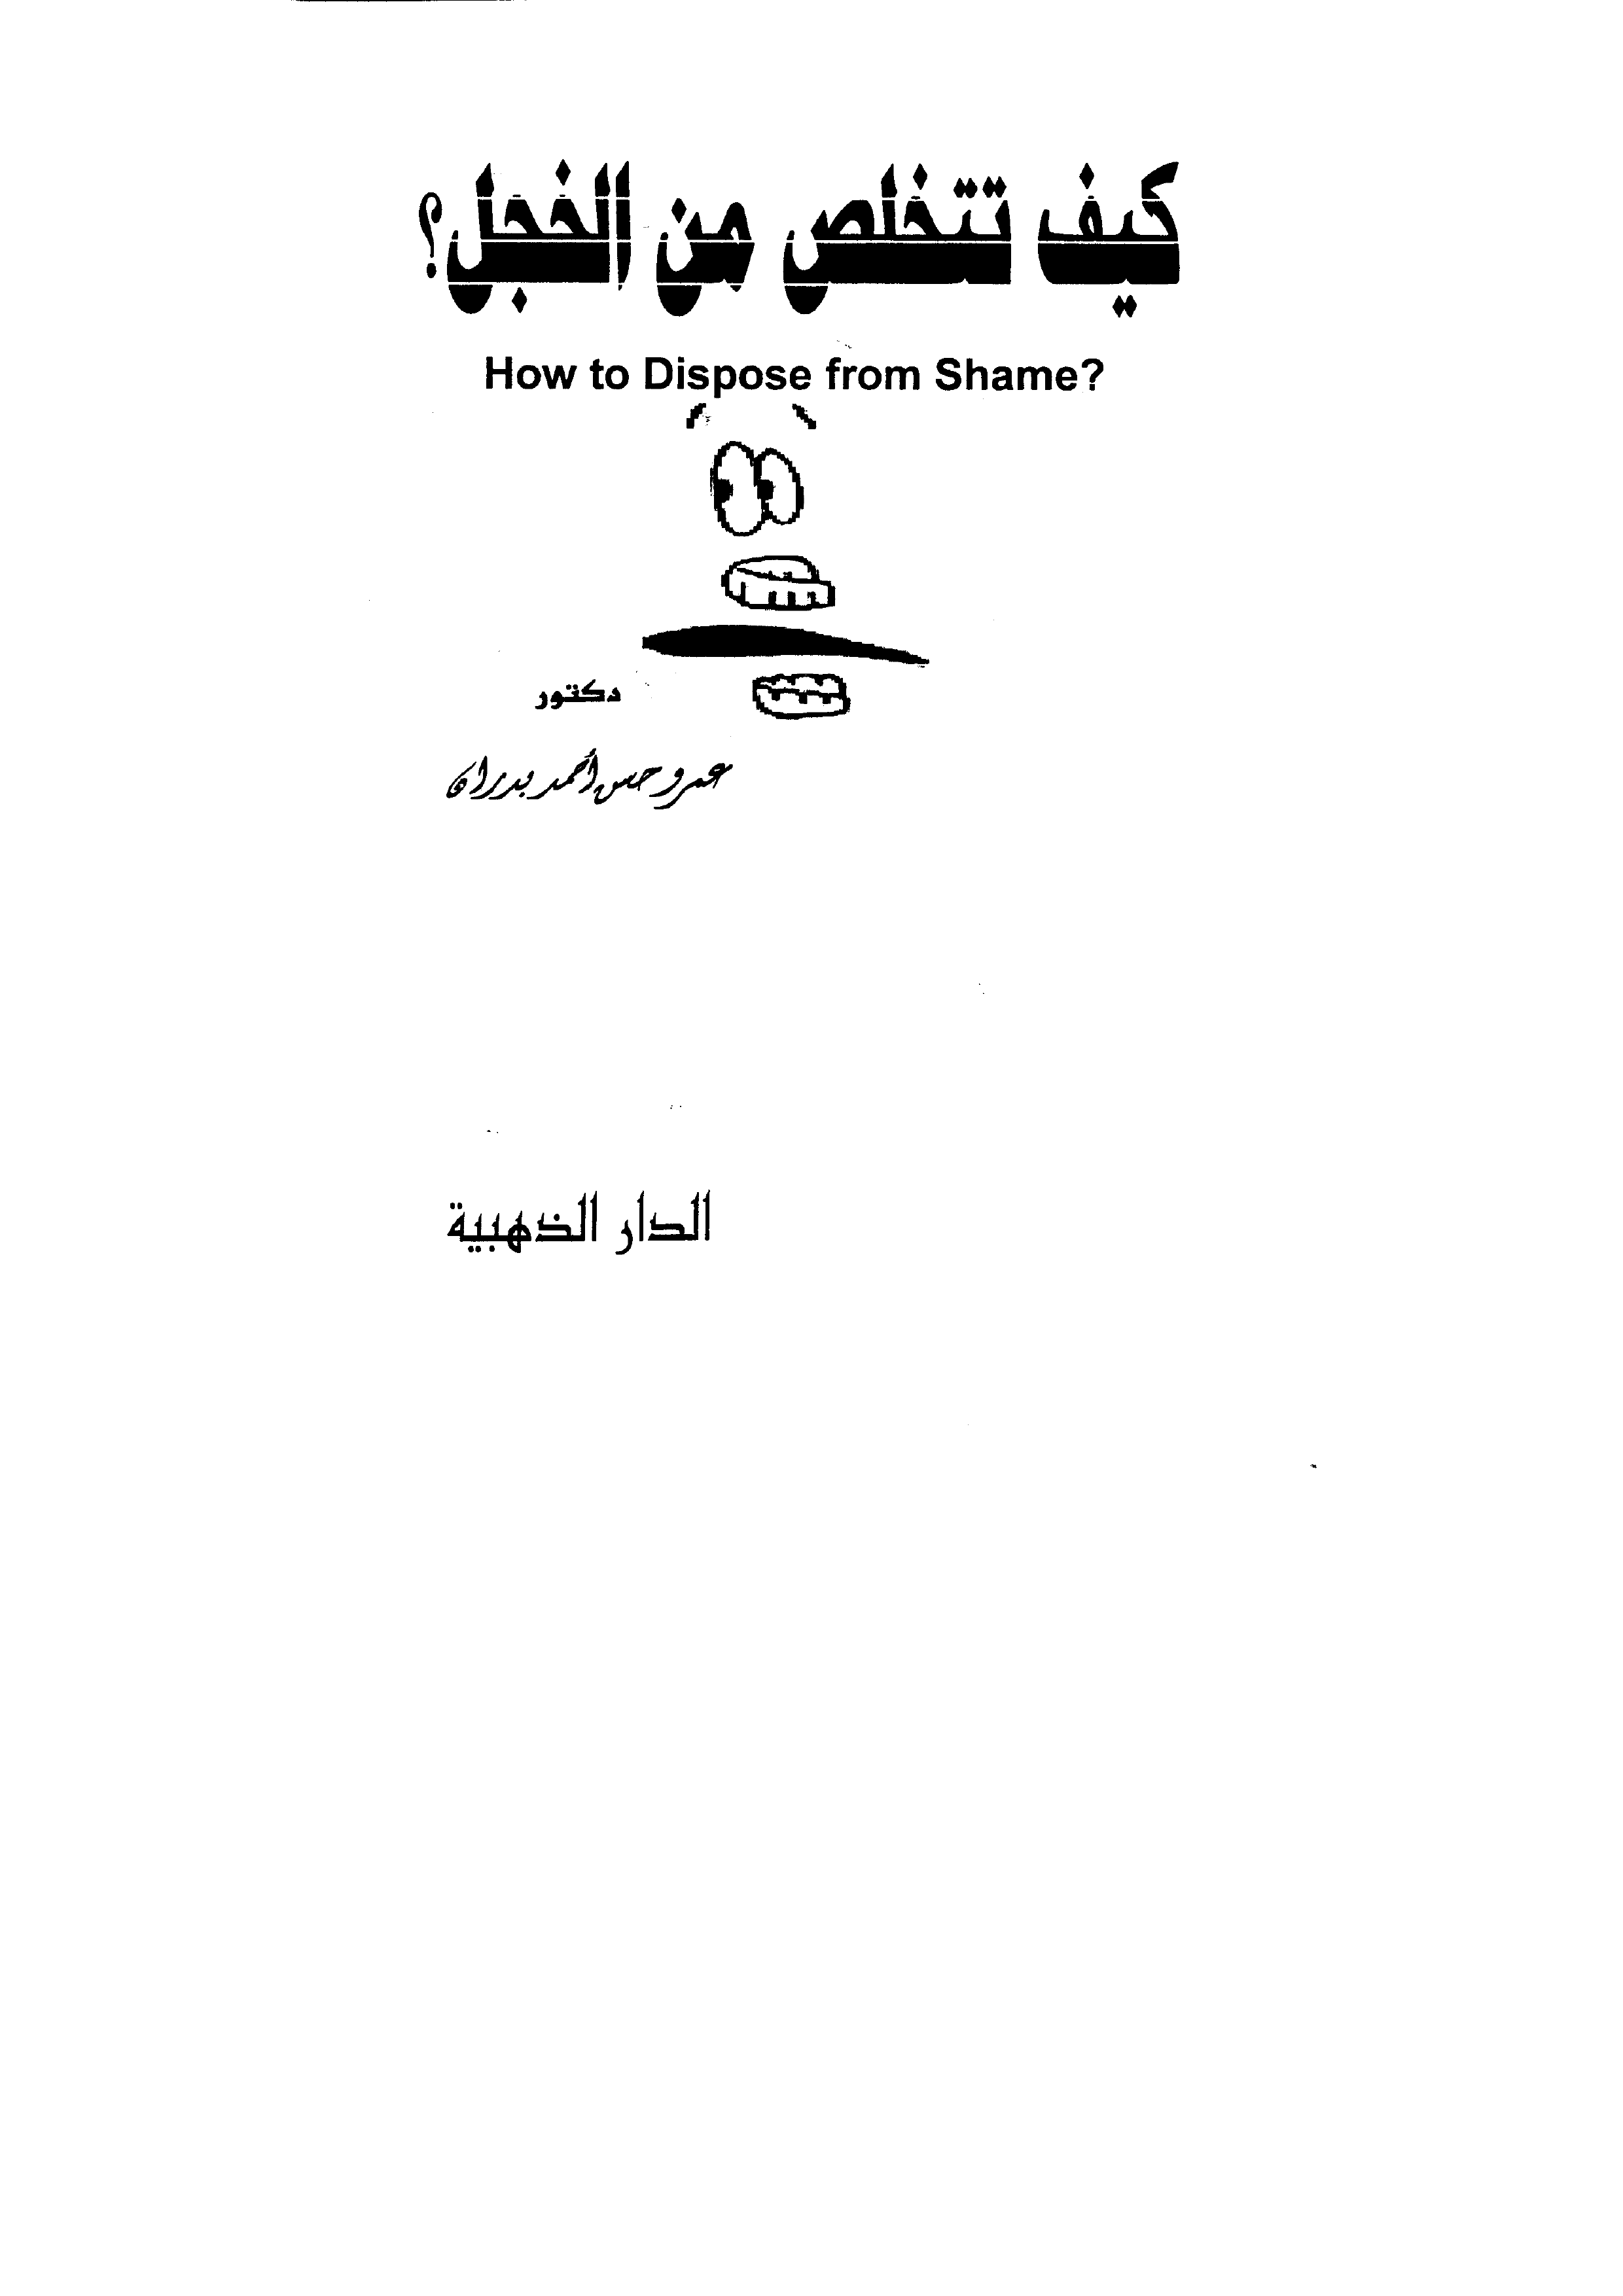 كيف تتخلص من الخجل؟
How to Dispose from Shame?
دكتور
عمرو حسن أحمد بدران
الدار الذهبية